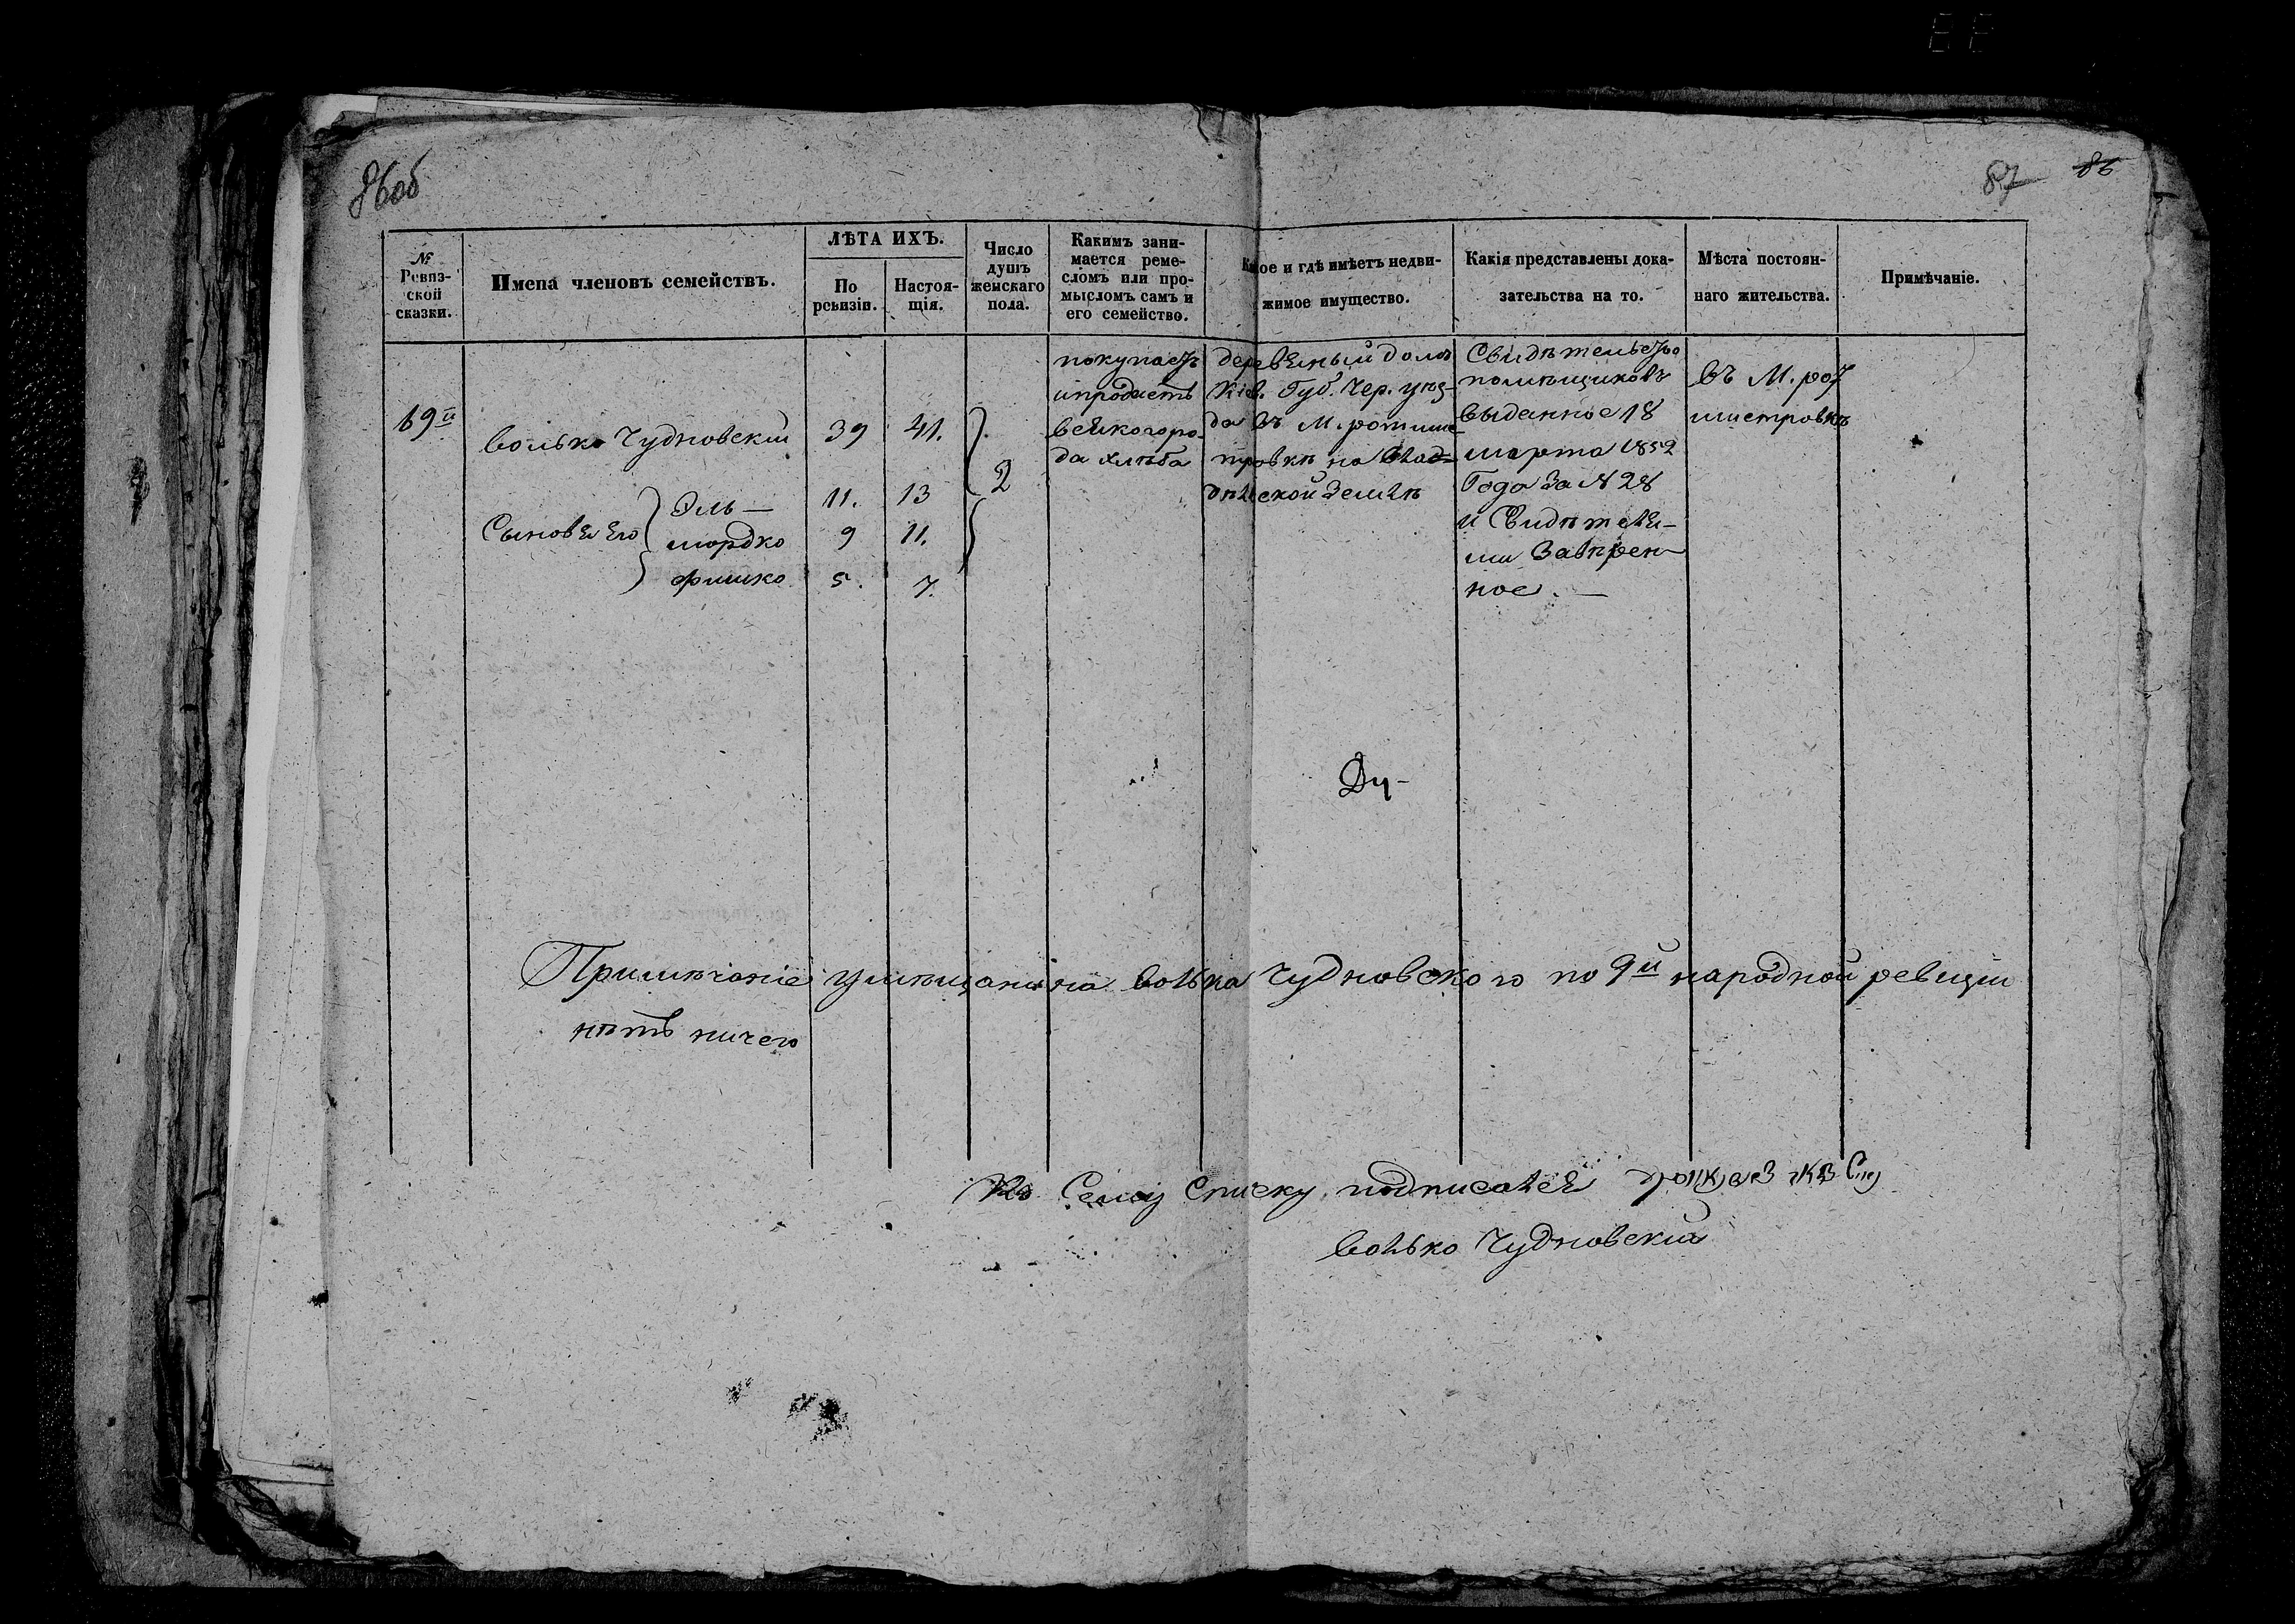 86об
87 86
№ Ревизской сказки.
Имена членовъ семействъ.
ЛѢТА ИХЪ.
По ревизіи.
Настоящія.
Число душъ женскаго пола.
Какимъ зани-
мается реме-
сломъ или про-
мысломъ самъ и
его семейство.
Какое и гдѣ имѣетъ недви-
жимое имущество.
Какія представлены дока-
зательства на то.
Мѣста постоян-
наго жительства.
Примѣчаніе.
19й
Волько Чудновскій 39 41.
Сыновья его
Эль — 11. 13
мордко 9 11.
фишко 5. 7.
2
покупаетъ
ипродаетъ
всякогоро-
да хлѣба
деревяный домъ
Кіев. Губ. Чер. уѣз-
да въ М. ротми-
стровкѣ на влад-
дѣльской землѣ
Свидѣтельство
помѣщиковъ
выданное 18
марта 1852
Года За № 28
и Свидѣтеля-
ми Завѣрен-
ное. —
въ М. рот
мистровкѣ
Примѣчаніе умѣщанина волька Чудновского по 9й народной ревизіи
нѣтъ ничего
Къ Сему Списку подписался
Волько Чудновскій